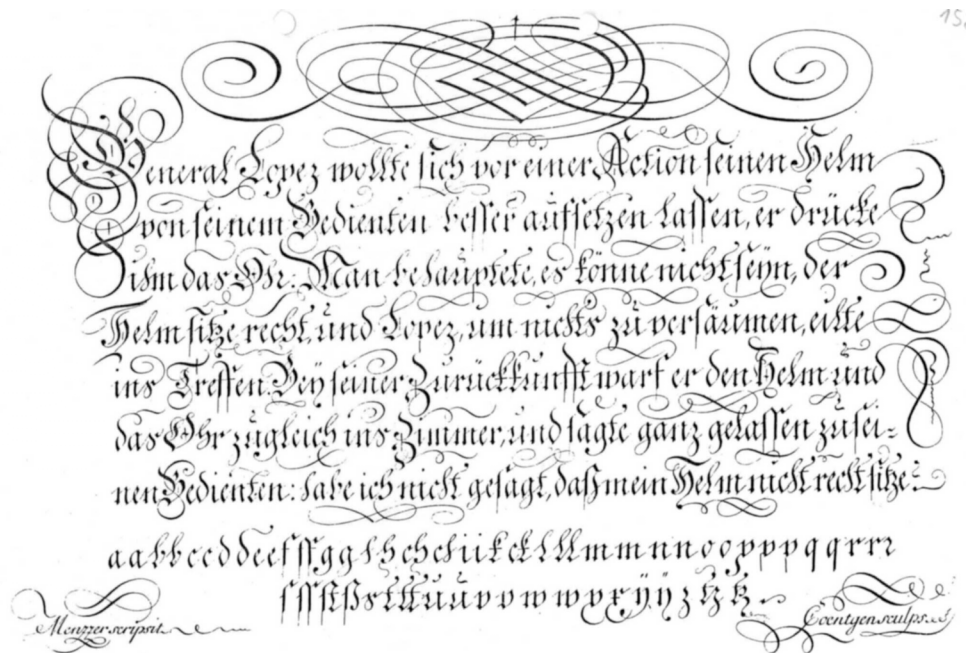 15.
General Lopez wollte sich vor einer Action seinen Helm
von seinem Bedienten besser aufsetzen lassen, er drücke
ihm das Ohr. Man behauptete, es könne nicht seyn, der
Helm sitze recht, und Lopez, um nichts zu versäumen, eilte
ins Treffen. Bey seiner Zurückkunfft warf er den Helm und
das Ohr zugleich ins Zimmer, und sagte ganz gelassen zu sei-
nen Bedienten: habe ich nicht gesagt, daß mein Helm nicht recht sitze?
Menzzer scripsit
Coentgen sculps.